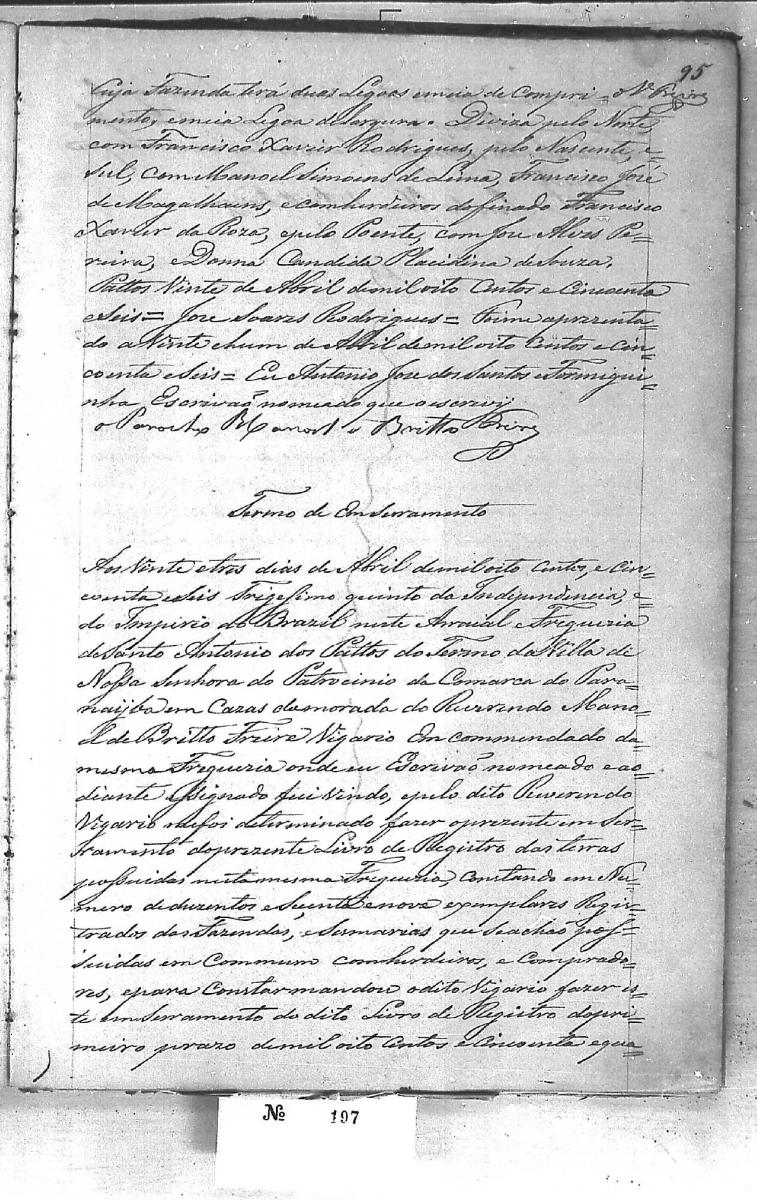 95
Cuja Fazenda terá duas Legoas emeia de Compri= Vº Freire
mento, emeia Legoa de Largura. Diviza pelo Norte,
com Francisco Xavier Rodrigues, pelo Nascente, e=
Sul, com Manoel Simoens de Lima, Francisco Joze
de Magalhaens, ecomherdeiros dofinado Francisco
Xavier da Roza, epelo Poente, com Joze Alves Pe=
reira, e Donna Candida Placidina de Souza.
Pattos Vinte de Abril demil oito Centos e Cincoenta
eSeis= Joze Soares Rodrigues= Foime aprezenta=
do a Vinte ehum de Abril de mil oito Centos e Cin=
coenta eSeis= Eu Antonio Joze dos Santos eFormigui=
nha Escrivaõ nomeado que o escrevi
o Parocho Manoel de Britto Freire
Termo de Enserramento
Aos Vinte etres dias de Abril demil oito Centos, e Cin=
coenta eSeis Trigesimo quinto da Independencia, e=
do Imperio do Brazil neste Arraial e Freguezia
deSanto Antonio dos Pattos do Termo da Villa de
Nossa Senhora do Patrocinio da Comarca do Para=
naijba em Cazas demorada do Reverendo Mano=
el de Britto Freire Vigario Encommendado da=
mesma Freguezia onde eu Escrivaõ nomeado e ao=
diante assignado fui vindo, epelo dito Reverendo
Vigario mefoi determinado fazer oprezente emSer=
ramento doprezente Livro de Registro das terras
possuidas nesta mesma Freguezia, Constando em Nu=
mero deduzentos eSecenta enove exemplares Regis=
trados das Fazendas, eSesmarias que Seachaõ pos=
suidas em Commum comherdeiros, e Comprado=
res, epara Constar mandou odito Vigario fazer es=
te emSerramento do dito Livro de Registro dopri=
meiro prazo demil oito Centos e Cincoenta equa
Nº 197